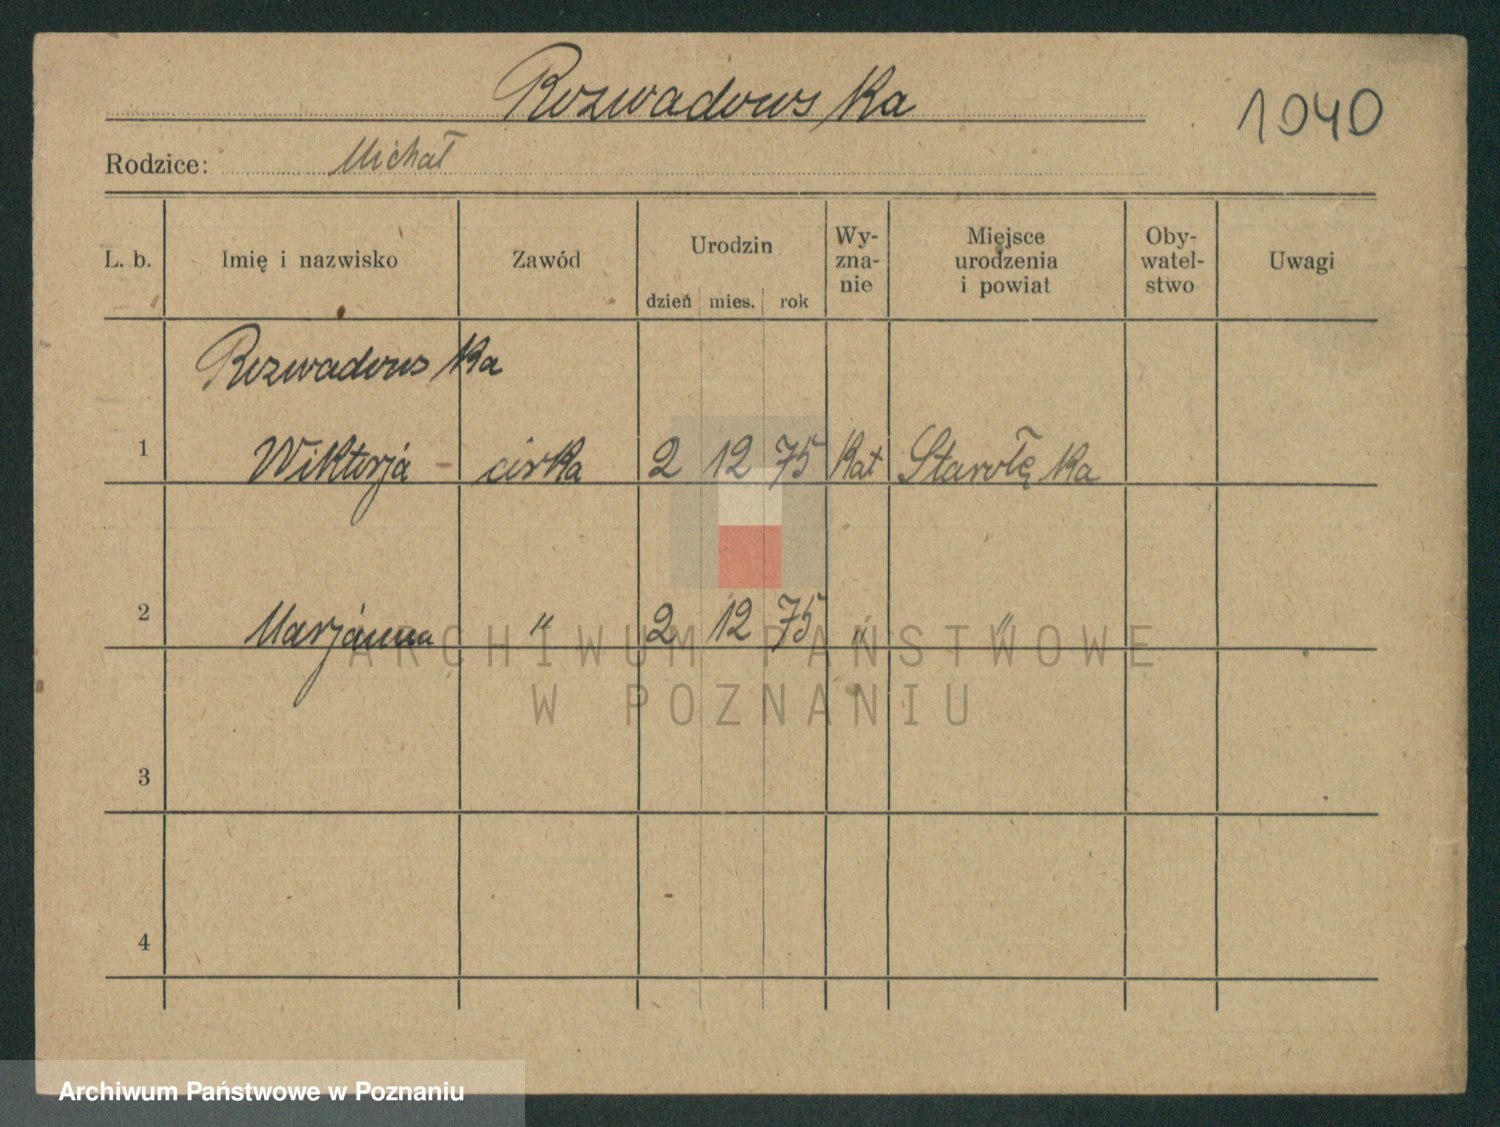 Rozwadowska
1040
Rodzice: Michał
L. b. Imię i nazwisko Zawód Urodzin dzień mies. rok Wy-zna-nie Miejsce urodzenia i powiat Oby-watel-stwo Uwagi
Rozwadowska
1 Wiktorja - córka 2 12 75 Kat Starołęka
2 Marjanna " 2 12 75 " "
3
4
ARCHIWUM PAŃSTWOWE
W POZNANIU
Archiwum Państwowe w Poznaniu